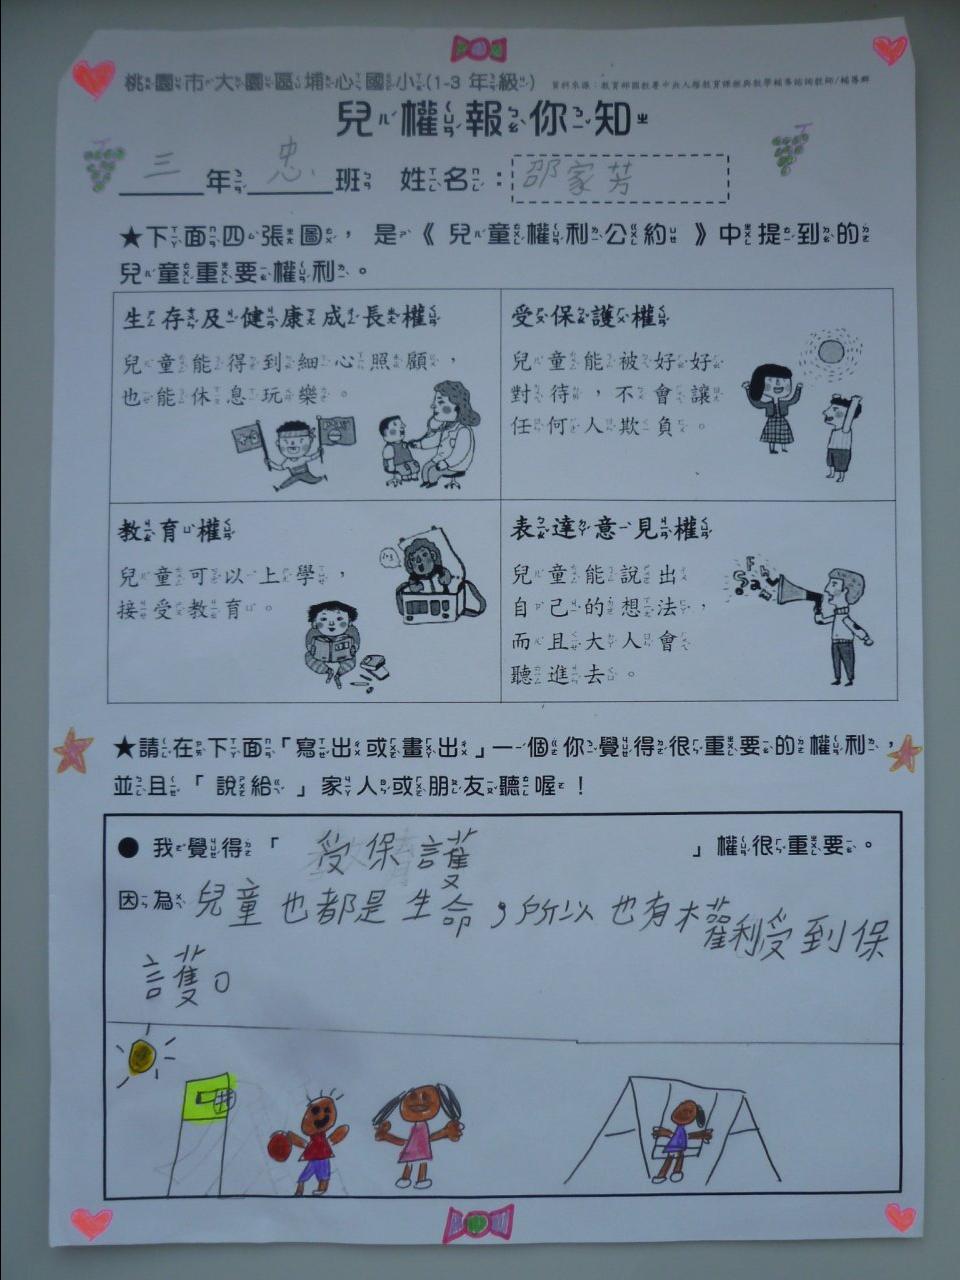 桃園市大園區埔心國小(1-3 年級) 資料來源：教育部國教署中央人權教育課程與教學輔導諮詢教師/輔導群
兒權報你知
三年忠班 姓名：邵家芳
★下面四張圖，是《兒童權利公約》中提到的
兒童重要權利。
生存及健康成長權
兒童能得到細心照顧，
也能休息玩樂。
受保護權
兒童能被好好
對待，不會讓
任何人欺負。
教育權
兒童可以上學，
接受教育。
表達意見權
兒童能說出
自己的想法，
而且大人會
聽進去。
★請在下面「寫出或畫出」一個你覺得很重要的權利，
並且「說給」家人或朋友聽喔！
●我覺得「受保護」權很重要。
因為兒童也都是生命，所以也有權利受到保
護。